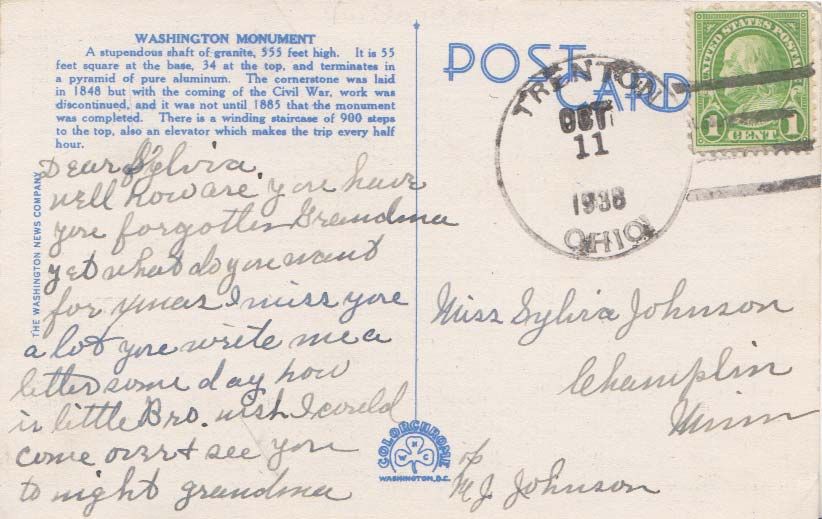 WASHINGTON MONUMENT
A stupendous shaft of granite, 555 feet high. It is 55
feet square at the base, 34 at the top, and terminates in
a pyramid of pure aluminum. The cornerstone was laid
in 1848 but with the coming of the Civil War, work was
discontinued, and it was not until 1885 that the monument
was completed. There is a winding staircase of 900 steps
to the top, also an elevator which makes the trip every half
hour.
Dear Sylvia
well how are you have
you forgotten Grandma
yet what do you want
for xmas I miss you
a lot you write me a
letter some day how
is little Bro. wish I could
come over + see you
to night grandma
THE WASHINGTON NEWS COMPANY
COLORCHROME
WNC
WASHINGTON, D.C.
POST
CARD
TRENTON
OCT
11
1938
OHIO
UNITED STATES POSTAGE
1 CENT 1
Miss Sylvia Johnson
Champlin
Minn
c/o
M. J. Johnson